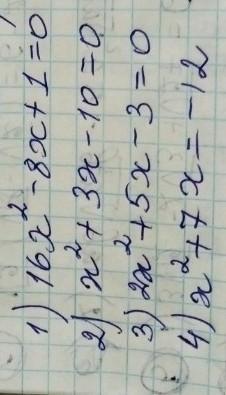 1) 16x² - 8x + 1 = 0
2) x² + 3x - 10 = 0
3) 2x² + 5x - 3 = 0
4) x² + 7x = -12